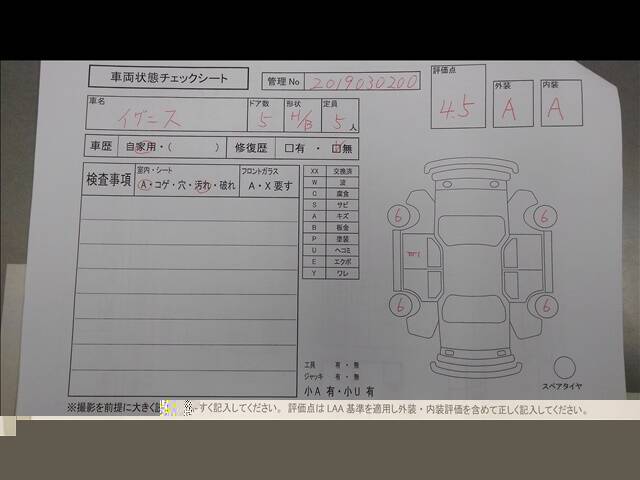 車両状態チェックシート
管理No 2019030200
評価点
4.5
外装
A
内装
A
車名
イグニス
ドア数
5
形状
H/B
定員
5人
車歴 自家用・( ) 修復歴 □有・□無
検査事項
室内・シート
A・コゲ・穴・汚れ・破れ
フロントガラス
A・X要す
XX 交換済
W 波
C 腐食
S サビ
A キズ
B 板金
P 塗装
U ヘコミ
E エクボ
Y ワレ
6
6
6
6
工具 有・無
ジャッキ 有・無
小A 有・小U 有
スペアタイヤ
※撮影を前提に大きく すく記入してください。評価点はLAA基準を適用し外装・内装評価を含めて正しく記入してください。